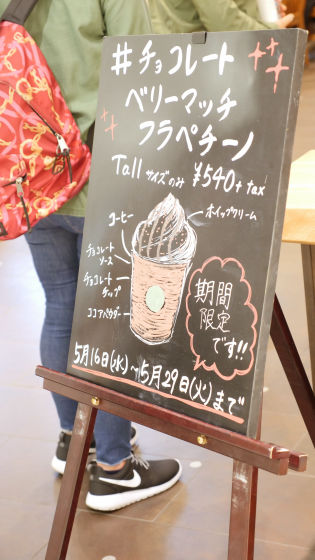 #チョコレート
ベリーマッチ
フラペチーノ
Tall サイズのみ ¥540+tax
コーヒー
ホイップクリーム
チョコレート
ソース
チョコレート
チップ
ココアパウダー
期間
限定
です!!
5月16日(水)~5月29日(火)まで